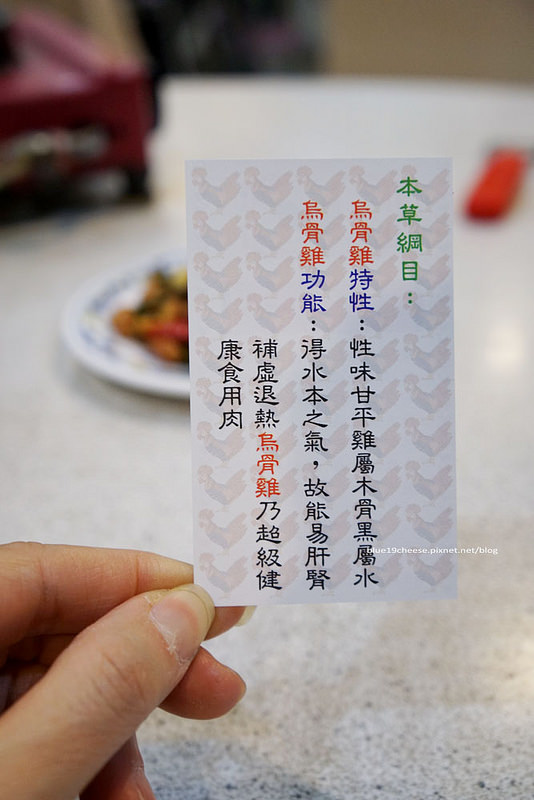 本草綱目：
烏骨雞特性：性味甘平雞屬木骨黑屬水
烏骨雞功能：得水本之氣，故能易肝腎
補虛退熱烏骨雞乃超級健
康食用肉
blue19cheese.pixnet.net/blog